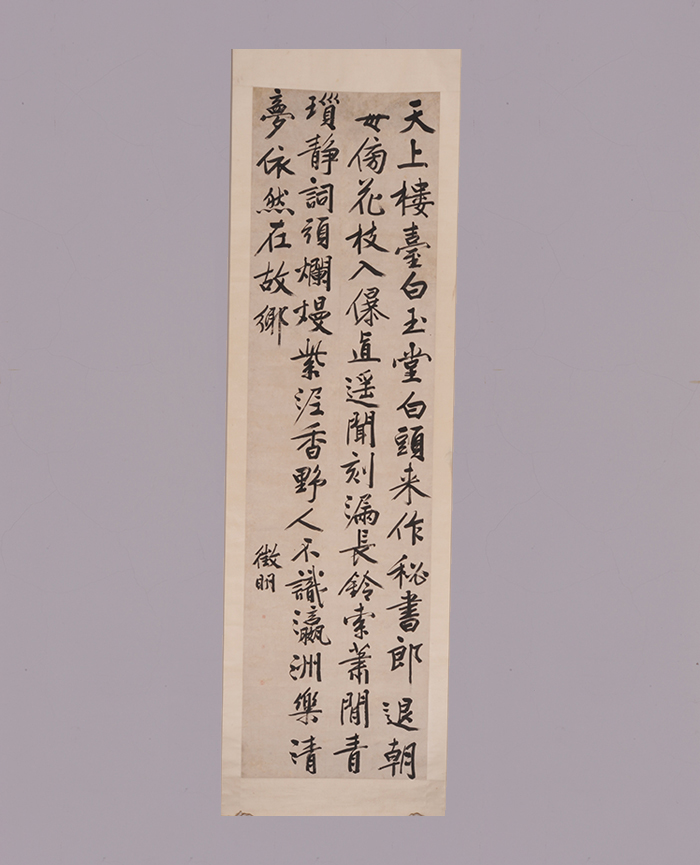 天上樓臺白玉堂白頭来作秘書郎退朝
每傍花枝入儤直遥聞刻漏長鈴索蕭閒青
瑣静詞頭爛熳紫泥香野人不識瀛洲樂清
夢依然在故鄉
徵明